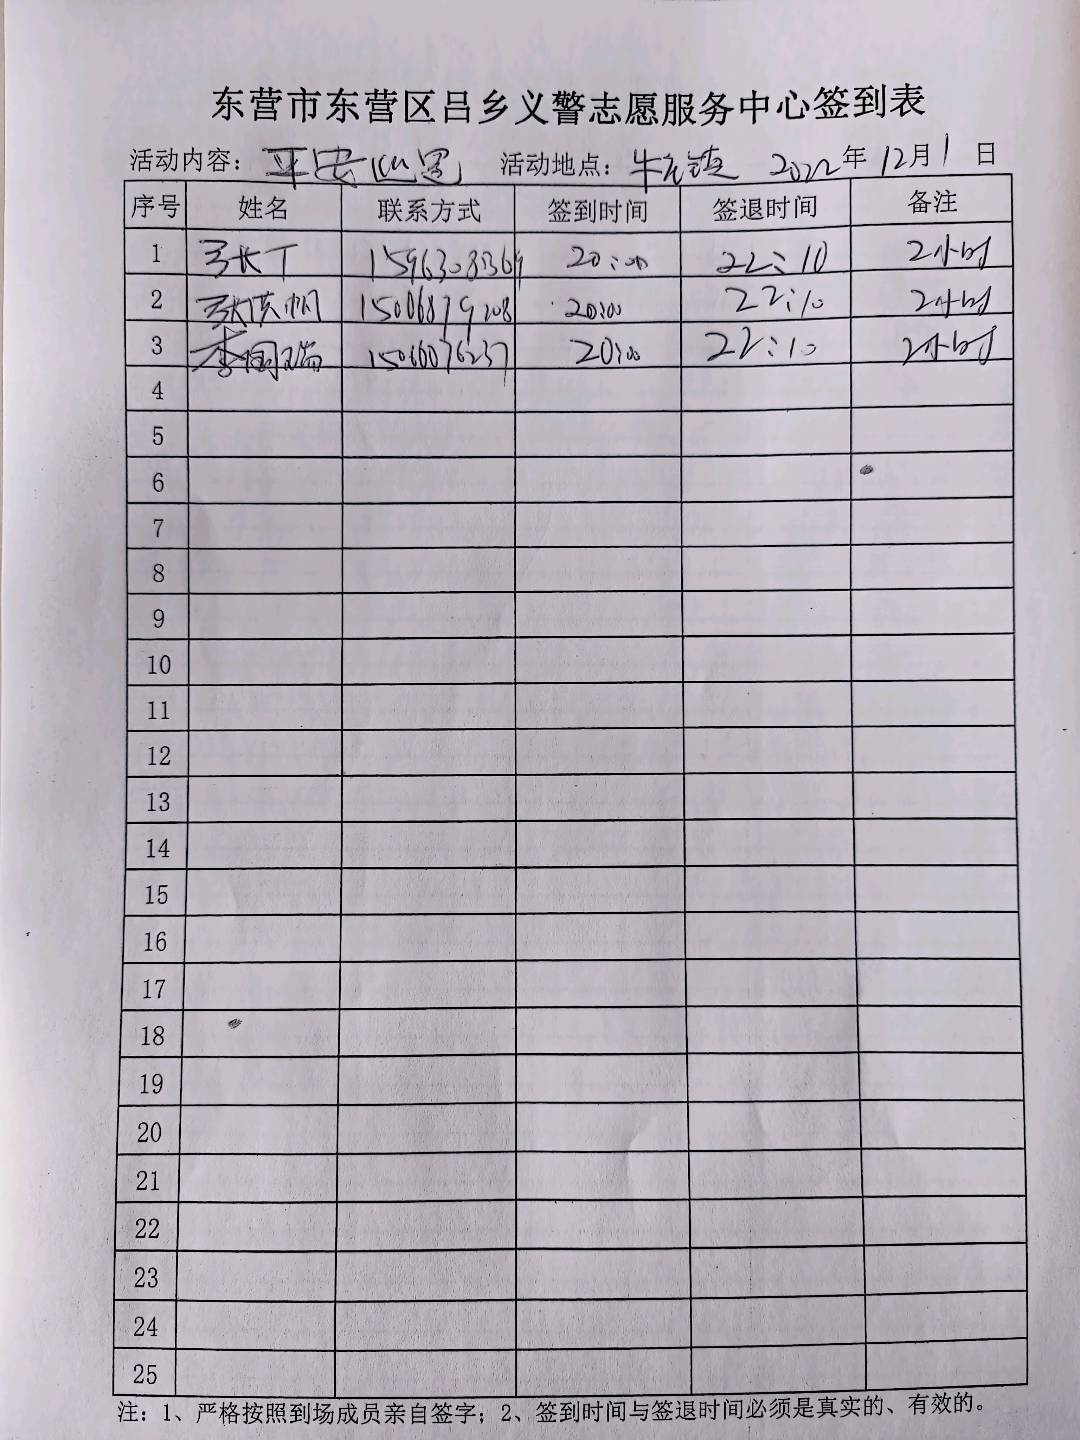 东营市东营区吕乡义警志愿服务中心签到表
活动内容：平安巡逻 活动地点：牛庄镇 2022年12月1日
序号 姓名 联系方式 签到时间 签退时间 备注
1 20:00 22:10 2小时
2 15006879208 20:00 22:10 2小时
3 李国瑞 15066076237 20:00 22:10 2小时
4
5
6
7
8
9
10
11
12
13
14
15
16
17
18
19
20
21
22
23
24
25
注：1、严格按照到场成员亲自签字；2、签到时间与签退时间必须是真实的、有效的。